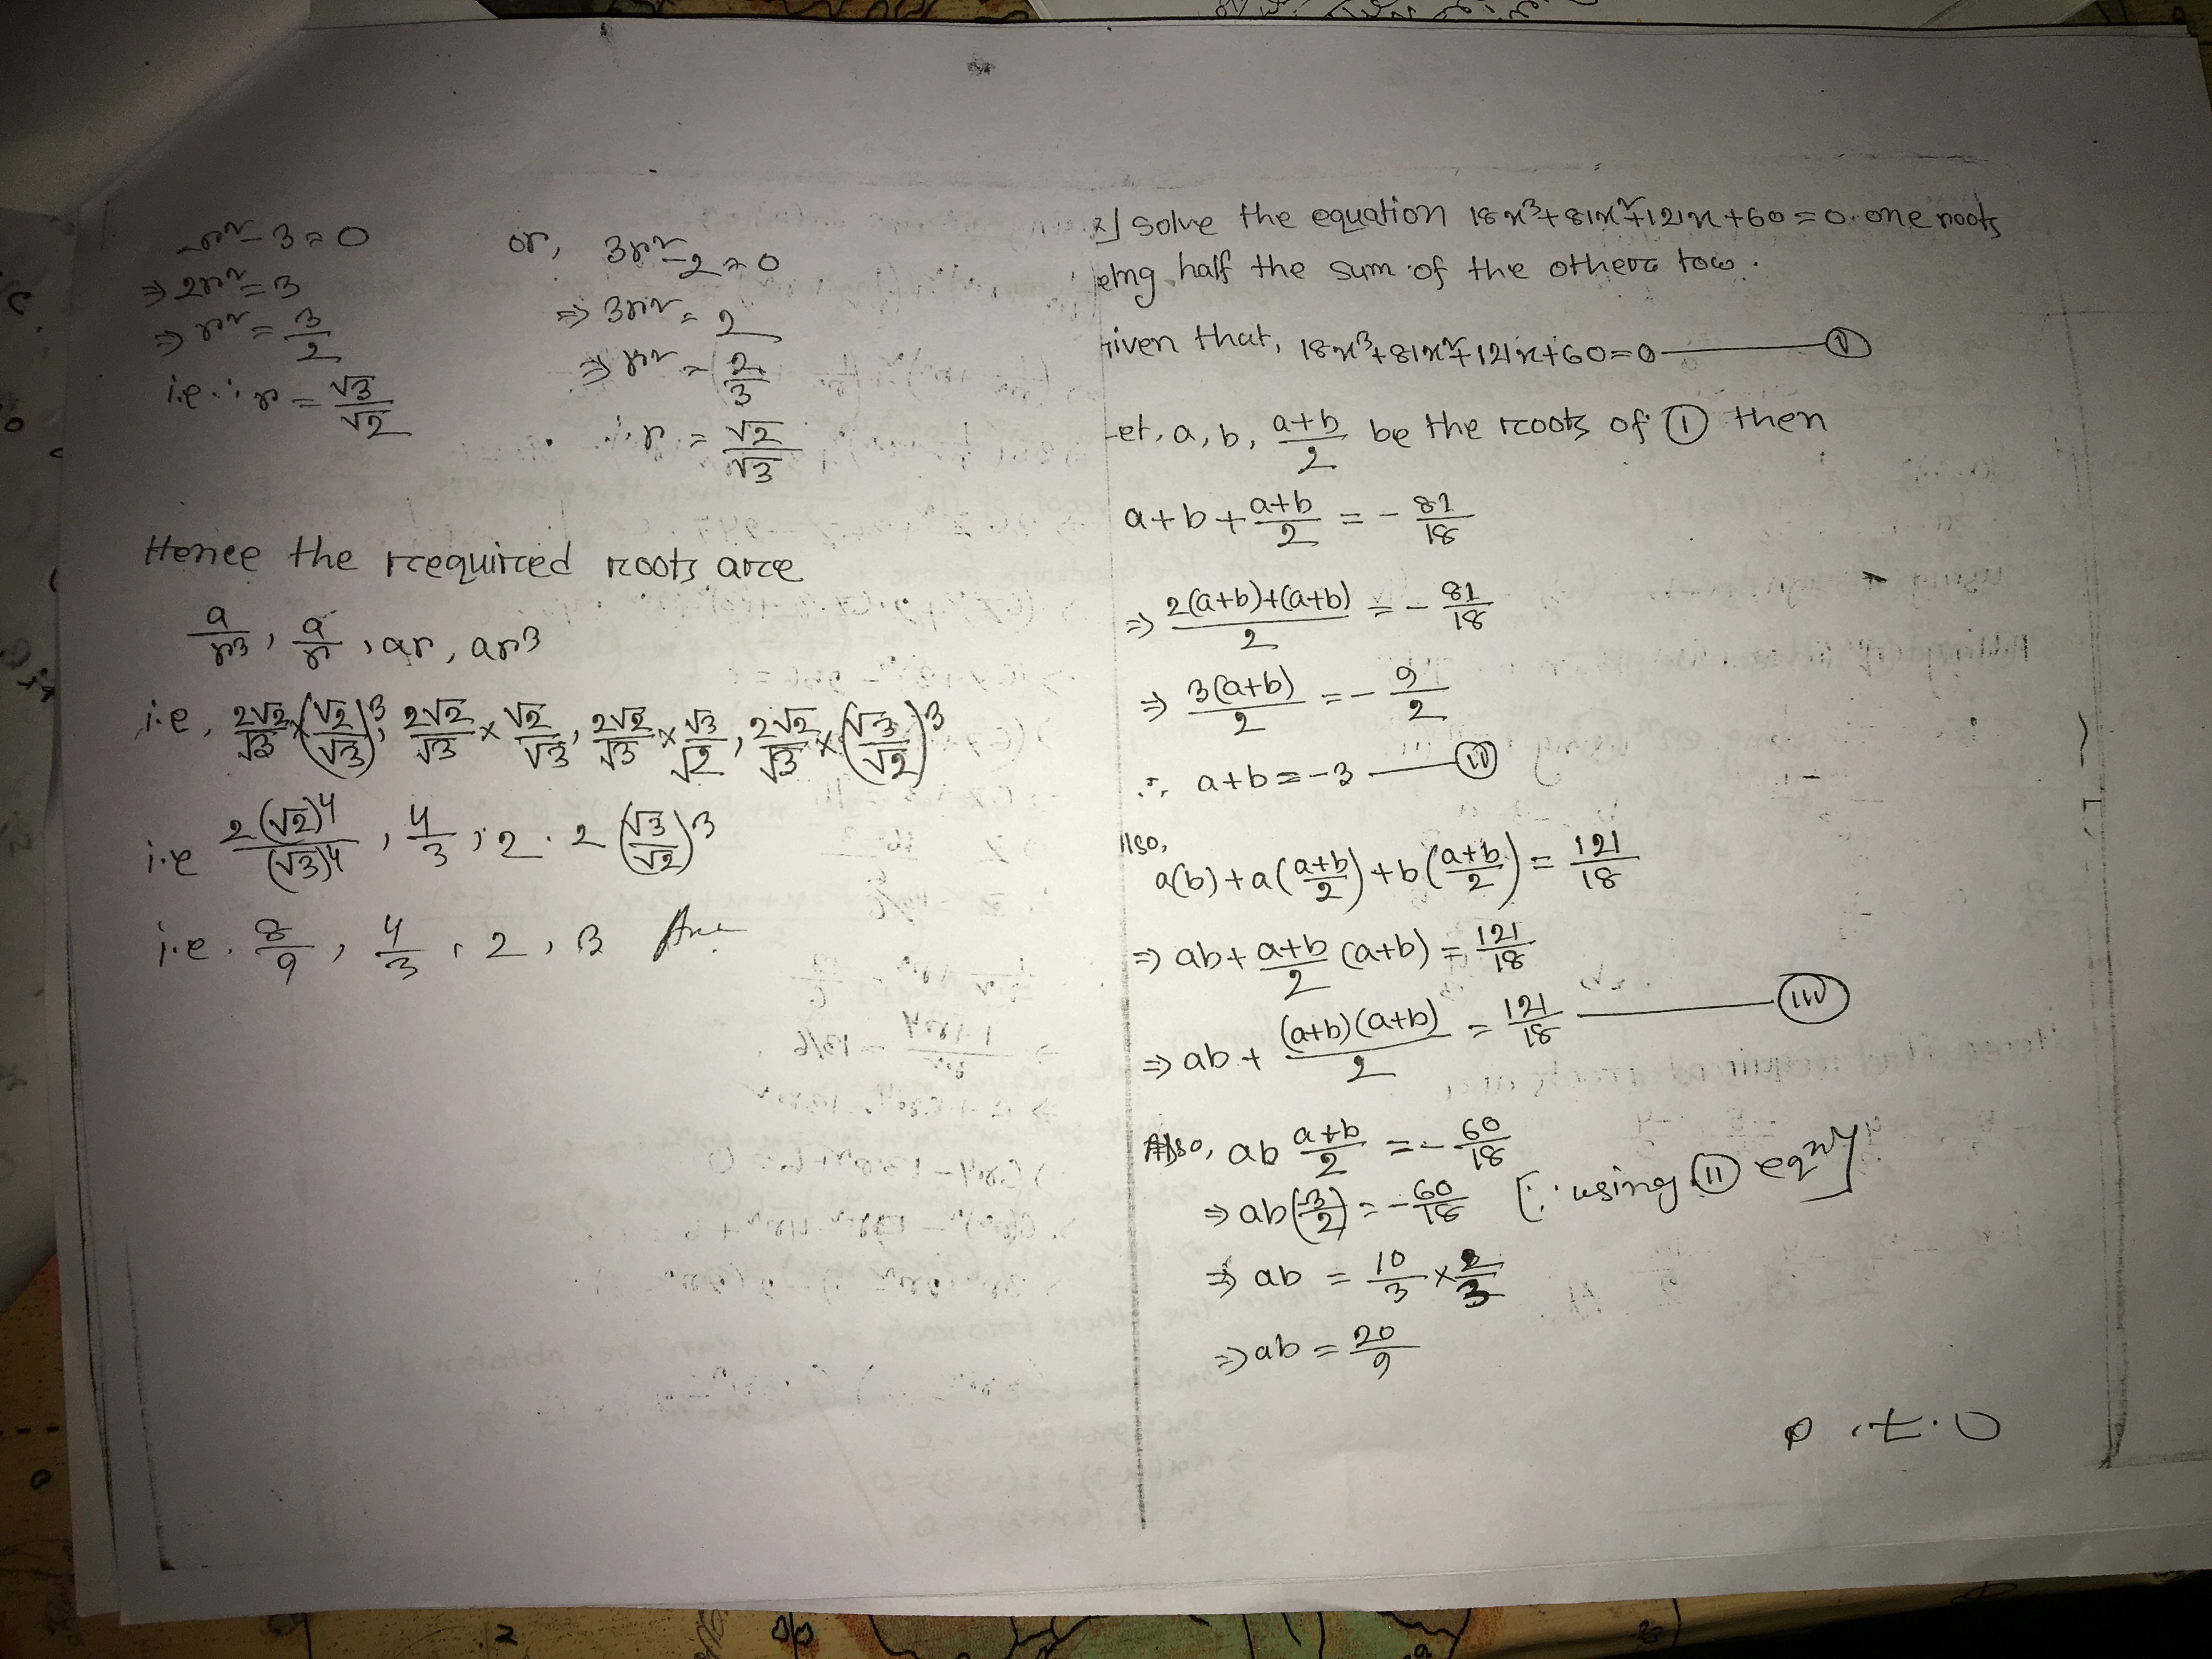 r² - 3 = 0
⇒ 2r² = 3
⇒ r² = 3/2
i.e ∴ r = √3/√2
or, 3r² - 2 = 0
⇒ 3r² = 2
⇒ r² = 2/3
∴ r = √2/√3
Hence the required roots are
a/r³, a/r, ar, ar³
i.e, 2√2/√3 × (√2/√3)³, 2√2/√3 × √2/√3, 2√2/√3 × √3/√2, 2√2/√3 × (√3/√2)³
i.e 2(√2)⁴/(√3)⁴, 4/3, 2 . 2(√3/√2)³
i.e. 8/9, 4/3, 2, 3 Ans
Solve the equation 18x³+81x²+121x+60=0. one roots
eing half the sum of the others tow.
iven that, 18x³+81x²+121x+60=0 — (I)
et, a, b, (a+b)/2 be the roots of (1) then
a+b+(a+b)/2 = - 81/18
⇒ (2(a+b)+(a+b))/2 = - 81/18
⇒ 3(a+b)/2 = - 9/2
∴ a+b = -3 — (II)
lso,
a(b)+a((a+b)/2)+b((a+b)/2) = 121/18
⇒ ab+(a+b)/2 (a+b) = 121/18
⇒ ab + (a+b)(a+b)/2 = 121/18 — (III)
Also, ab (a+b)/2 = - 60/18
⇒ ab(-3/2) = - 60/18 [∵ using (II) eqⁿ]
⇒ ab = 10/3 × 2/3
⇒ ab = 20/9
P.t.O